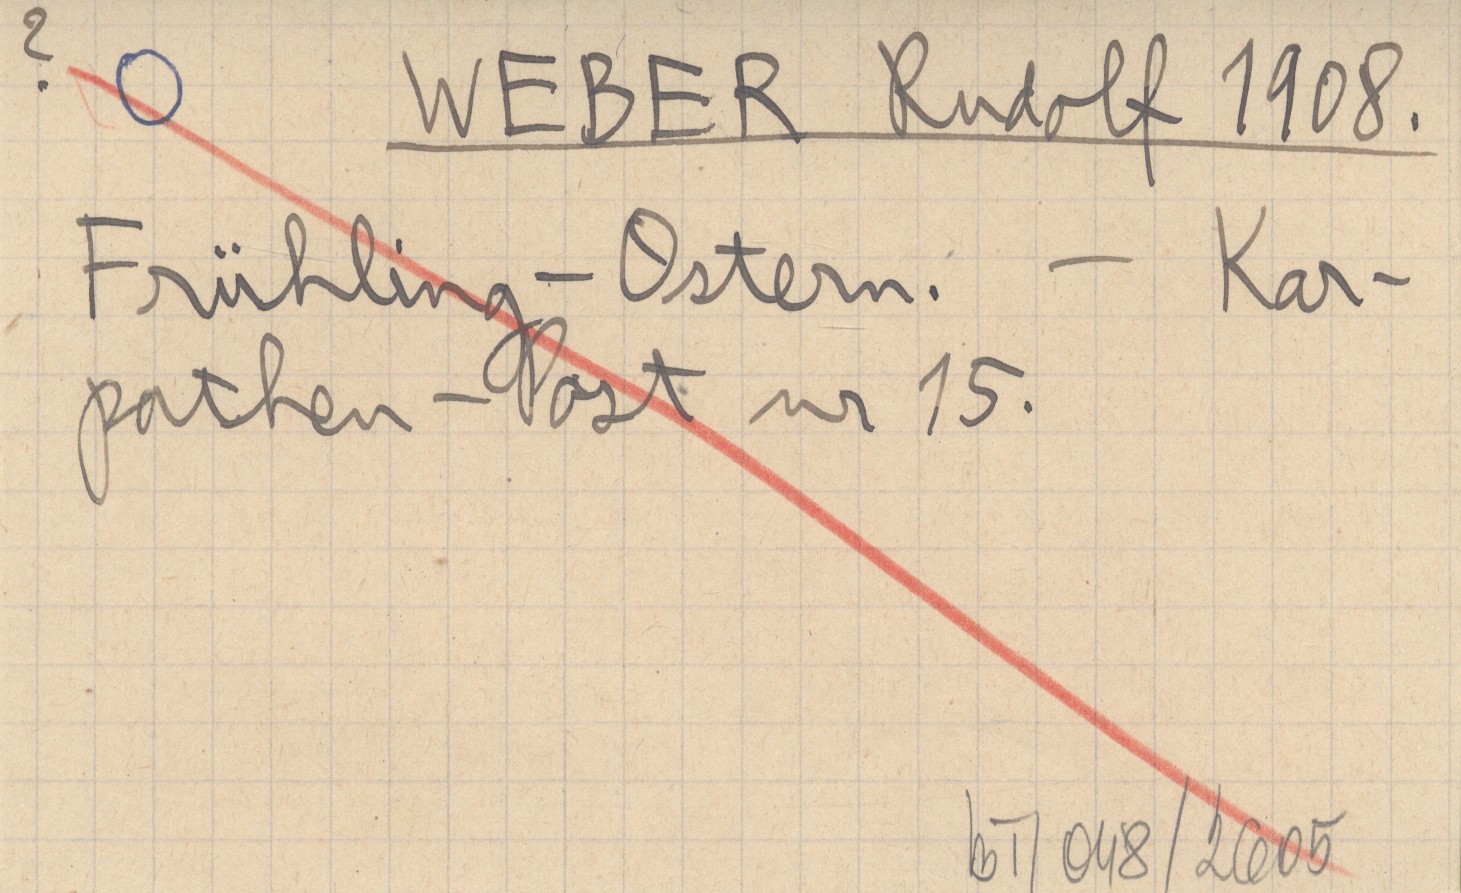 ?
WEBER Rudolf 1908.
Frühling - Ostern. - Kar-
pathen - Post nr 15.
bT/048/2605